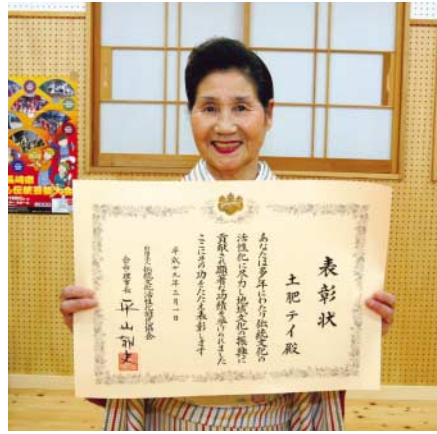 表彰状
土肥テイ殿
あなたは多年にわたり伝統文化の
活性化に尽力し地域文化の振興に
貢献され顕著な功績を挙げられました
ここにその功をたたえ表彰します
平成十九年二月一日
財団法人伝統文化活性化国民協会
会長・理事長
平山郁夫
長崎県
伝統芸能大会